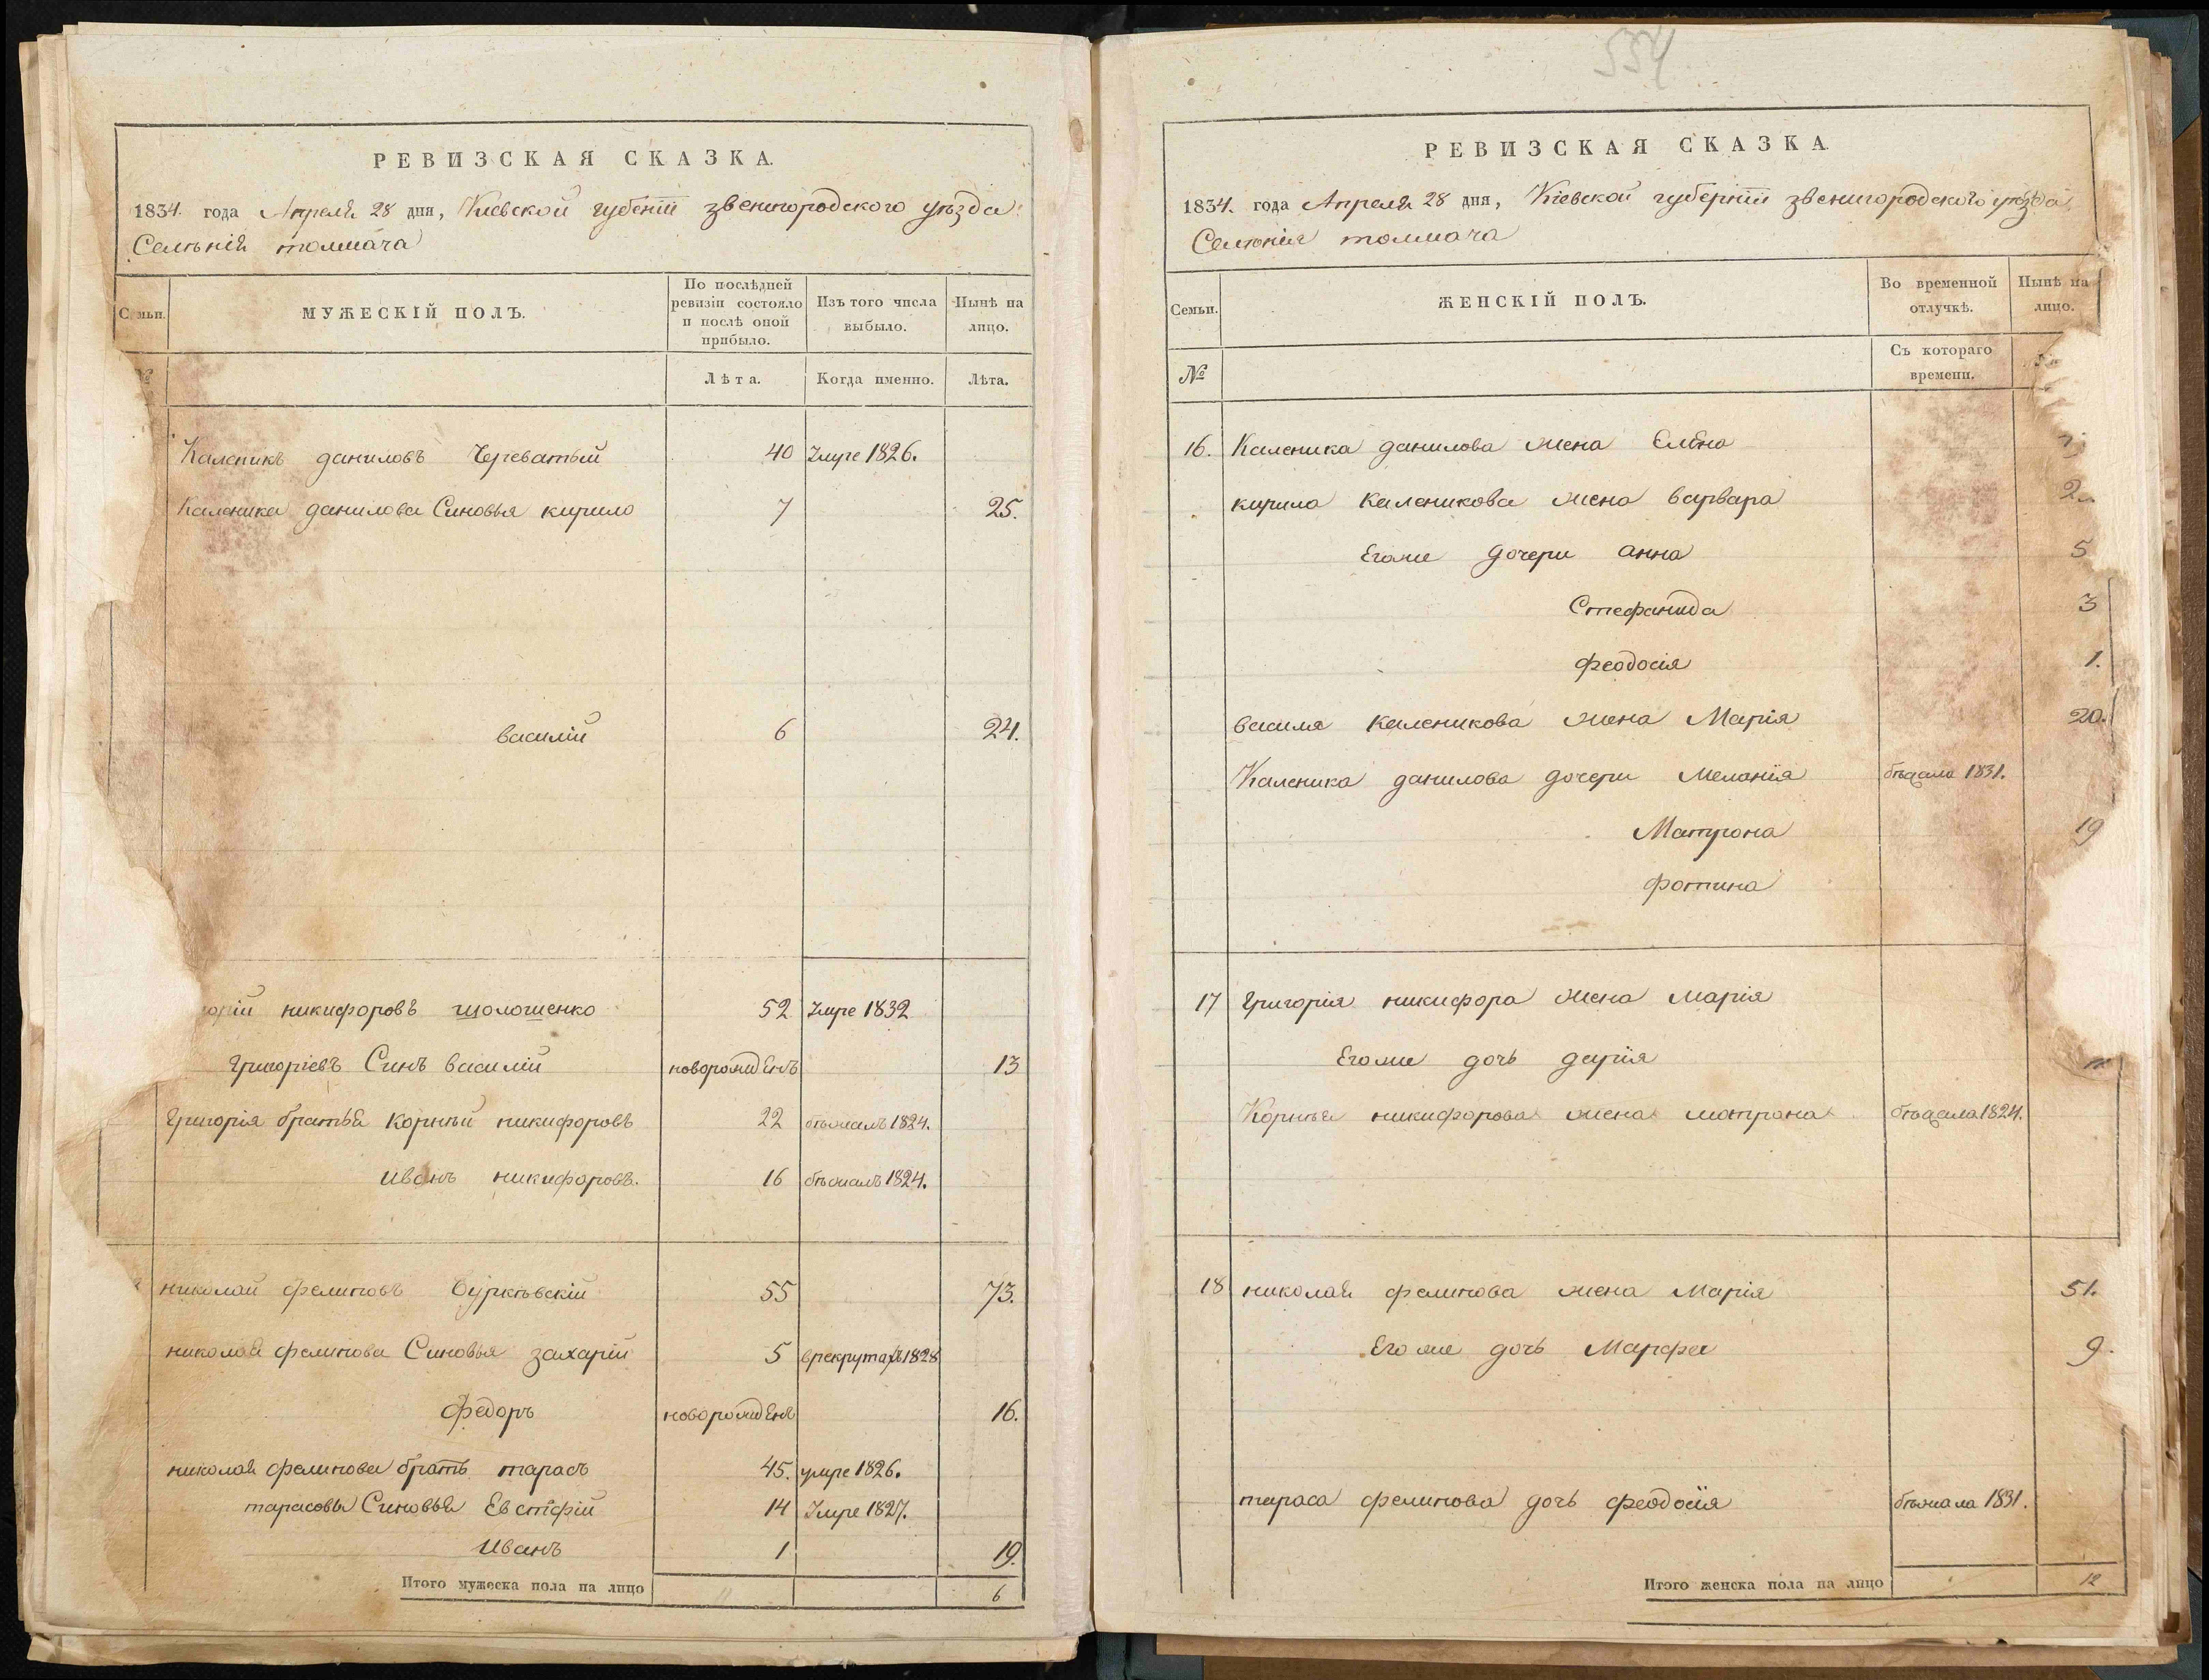 РЕВИЗСКАЯ СКАЗКА.
1834. года Апреля 28 дня, Киевской губеніи звенигородского уѣзда
Селѣнія толмача
Семьи.
МУЖЕСКІЙ ПОЛЪ.
По послѣдней ревизіи состояло и послѣ оной прибыло.
Изъ того числа выбыло.
Нынѣ на лицо.
№
Лѣта.
Когда именно.
Лѣта.
Каленикъ даниловъ Череватый 40 Умре 1826.
Каленика данилова Синовья кирило 7 25.
василій 6 24.
никифоровъ шолошенко 52 Умре 1832
Григоріевъ Синъ василій новорожденъ 13
Григорія братья Корнѣй никифоровъ 22 бѣжалъ 1824.
Иванъ никифоровъ. 16 бѣжалъ 1824.
николай фелиповъ 55 73.
николая фелипова Синовья захарій 5 врекрутахъ 1828
Федоръ новорожденъ 16.
николая фелипова братъ тарасъ 45. умре 1826.
тарасовы Синовья Евстфій 14 Умре 1827.
Иванъ 1 19.
Итого мужеска пола на лицо 6
534
РЕВИЗСКАЯ СКАЗКА.
1834. года Апреля 28 дня, Кіевской губерніи звенигородского уѣзда
Селѣнія толмача
Семьи.
ЖЕНСКІЙ ПОЛЪ.
Во временной отлучкѣ.
Нынѣ на лицо.
№
Съ котораго времени.
16. Каленика данилова жена Елена
кирила Каленикова жена варвара
Егоже дочери анна 5
Стефанида 3
феодосія 1.
василя каленикова жена Марія 20.
Каленика данилова дочери Меланія бѣжала 1831.
Матрона 19
фотина
17 Григорія никифора жена марія
Егоже дочь дарія
Корнѣя никифорова жена матрона бѣжала 1824.
18 николая фелипова жена Марія 51.
Егоже дочь Марфа 9.
тараса фелипова дочь феодосія бѣжала 1831.
Итого женска пола на лицо 12